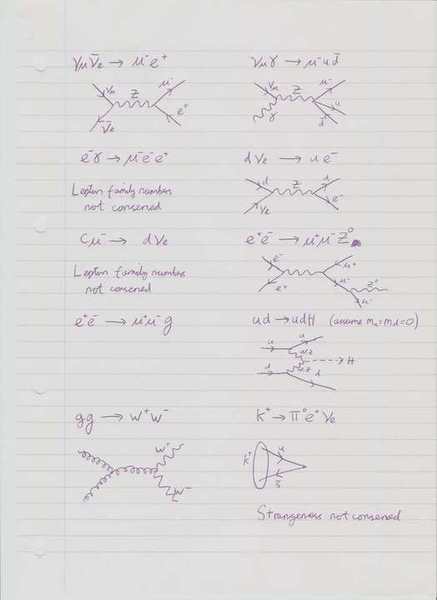 νμ ν̄e → μ⁻ e⁺
νμ γ → μ⁻ u d̄
νμ
Z
μ⁻
ν̄e
e⁺
νμ
Z
μ⁻
γ
u
d̄
e⁻γ → μ⁻e⁻e⁺
d νe → u e⁻
Lepton family number
not conserved
d
Z
u
νe
e⁻
c μ⁻ → d νe
e⁺e⁻ → μ⁺μ⁻Z⁰
Lepton family number
not conserved
e⁻
e⁺
μ⁺
Z⁰
μ⁻
e⁺e⁻ → μ⁺μ⁻g
ud → udH (assume mu=md=0)
u
u
H
d
d
gg → W⁺W⁻
K⁺ → π⁰e⁺νe
W⁺
W⁻
K⁺
u
s̄
Strangeness not conserved